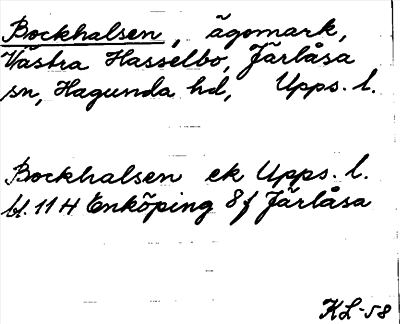 Bockhalsen, ägomark,
Västra Hasselbo, Järlåsa
sn, Hagunda hd, Upps. l.
Bockhalsen ek Upps. l.
bl. 11 H Enköping 8 f Järlåsa
KL-58